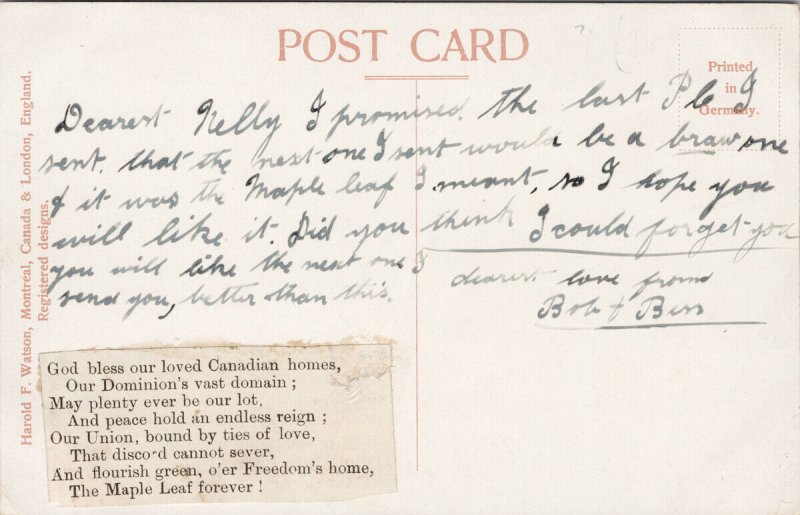 POST CARD
Printed
in
Germany.
Harold F. Watson, Montreal, Canada & London, England.
Registered designs.
Dearest Nelly I promised the last P.C. I
sent. that the next one I sent would be a braw one
& it was the Maple leaf I meant, so I hope you
will like it. Did you think I could forget you
you will like the next one I
send you, better than this.
dearest love from
Bob & Bess
God bless our loved Canadian homes,
Our Dominion's vast domain ;
May plenty ever be our lot,
And peace hold an endless reign ;
Our Union, bound by ties of love,
That discord cannot sever,
And flourish green, o'er Freedom's home,
The Maple Leaf forever !